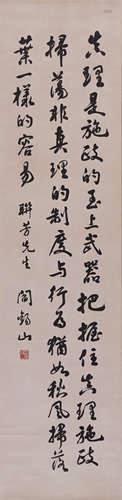 真理是施政的至上武器把握住真理施政
掃蕩非真理的制度与行為犹如秋风掃落
葉一樣的容易 聯芳先生 閻錫山